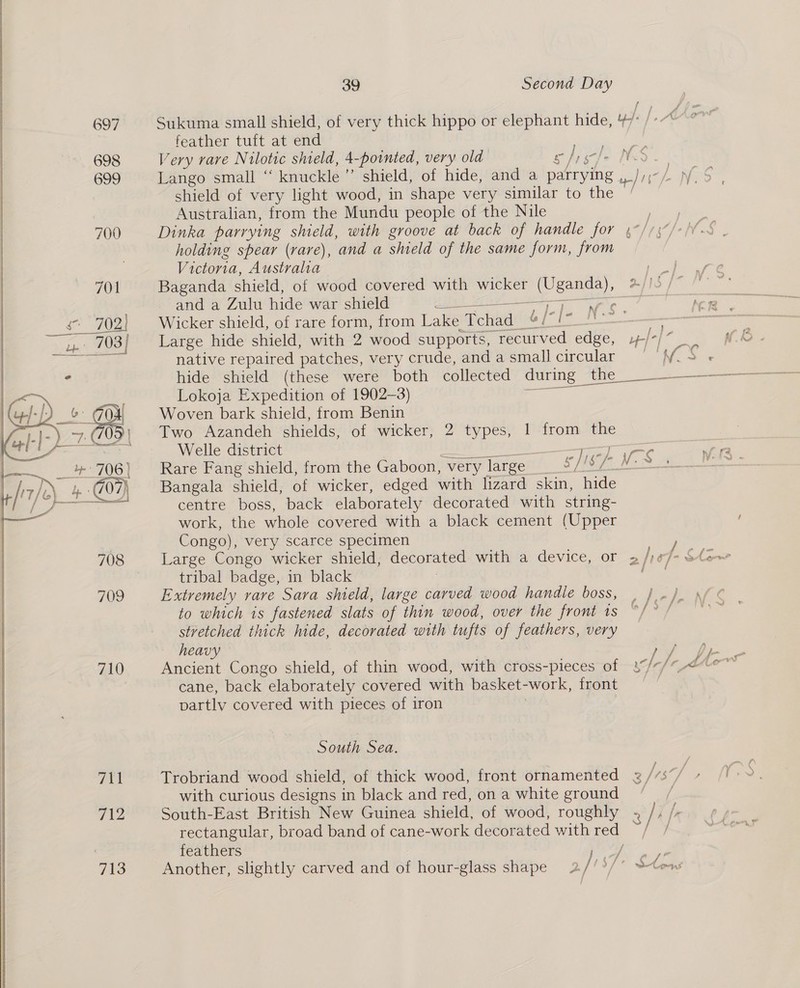 39 Second Day
697 Sukuma small shield, of very thick hippo or elephant hide, 4/-/-
feather tuft at end
698 Very rare Nilotic shield, 4-pointed, very old 5/15/- N.S.
699 Lango small “ knuckle ” shield, of hide, and a parrying N.S.
shield of very light wood, in shape very similar to the
Australian, from the Mundu people of the Nile
700 Dinka parrying shield, with groove at back of handle for N.S.
holding spear (rare), and a shield of the same form, from
Victoria, Australia
701 Baganda shield, of wood covered with wicker (Uganda), 2/15/- N.S.
and a Zulu hide war shield
5- 702] Wicker shield, of rare form, from Lake Tchad 6/-/- N.S.
4- 703] Large hide shield, with 2 wood supports, recurved edge, 4/-/- N.S.
native repaired patches, very crude, and a small circular
hide shield (these were both collected during the
Lokoja Expedition of 1902–3)
(4/-/-) 6- 704] Woven bark shield, from Benin
(4/-/-) 7- 705] Two Azandeh shields, of wicker, 2 types, 1 from the
Welle district
4- 706] Rare Fang shield, from the Gaboon, very large 5/15/- N.S.
4/17/6) 4- 707] Bangala shield, of wicker, edged with lizard skin, hide
centre boss, back elaborately decorated with string-
work, the whole covered with a black cement (Upper
Congo), very scarce specimen
708 Large Congo wicker shield, decorated with a device, or
tribal badge, in black
709 Extremely rare Sara shield, large carved wood handle boss, N.S.
to which is fastened slats of thin wood, over the front is
stretched thick hide, decorated with tufts of feathers, very
heavy
710 Ancient Congo shield, of thin wood, with cross-pieces of
cane, back elaborately covered with basket-work, front
partly covered with pieces of iron
South Sea.
711 Trobriand wood shield, of thick wood, front ornamented N.S.
with curious designs in black and red, on a white ground
712 South-East British New Guinea shield, of wood, roughly
rectangular, broad band of cane-work decorated with red
feathers
713 Another, slightly carved and of hour-glass shape